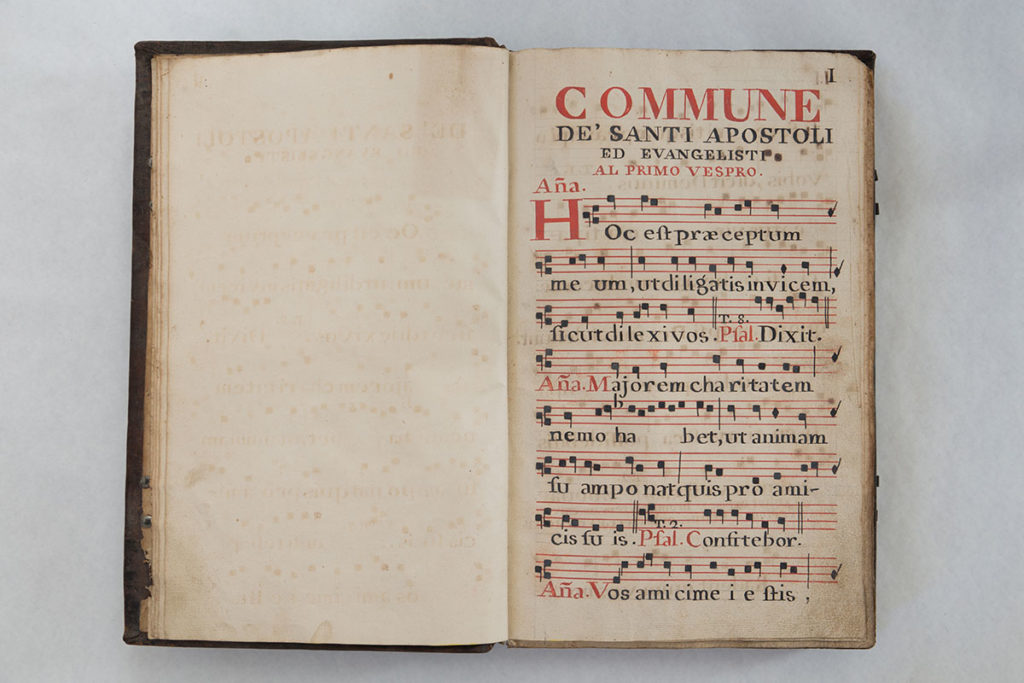 I
COMMUNE
DE' SANTI APOSTOLI
ED EVANGELISTI.
AL PRIMO VESPRO.
Aña.
HOc est præceptum
me um, ut diligatis invicem,
T. 8.
ſicut dilexi vos. Pſal. Dixit.
Aña. Majorem cha ritatem
b
nemo ha bet, ut animam
ſu am ponat quis pro ami-
T. 2.
cis ſu is. Pſal. Confitebor.
Aña. Vos amici me i e ſtis,